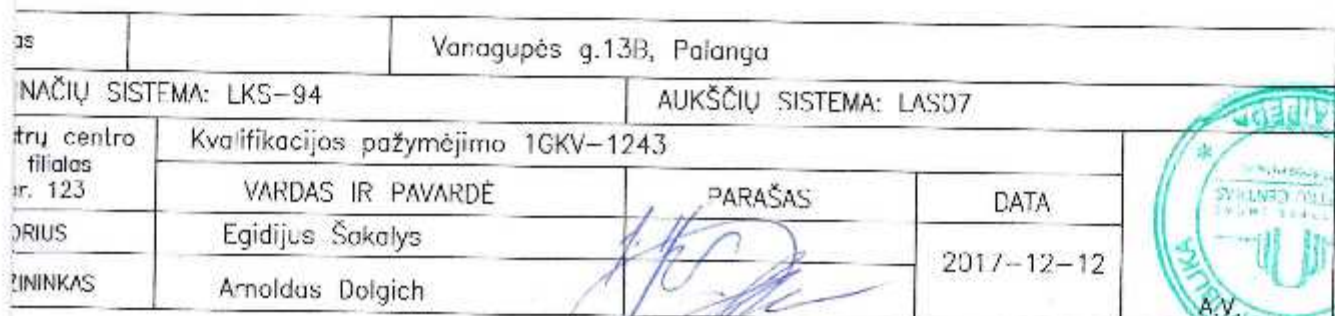 as Vanagupės g.13B, Palanga
NAČIŲ SISTEMA: LKS-94 AUKŠČIŲ SISTEMA: LAS07
trų centro Kvalifikacijos pažymėjimo 1GKV-1243
filialas
r. 123 VARDAS IR PAVARDĖ PARAŠAS DATA
ORIUS Egidijus Šakalys
2017-12-12
ŽININKAS Arnoldas Dolgich
A.V.